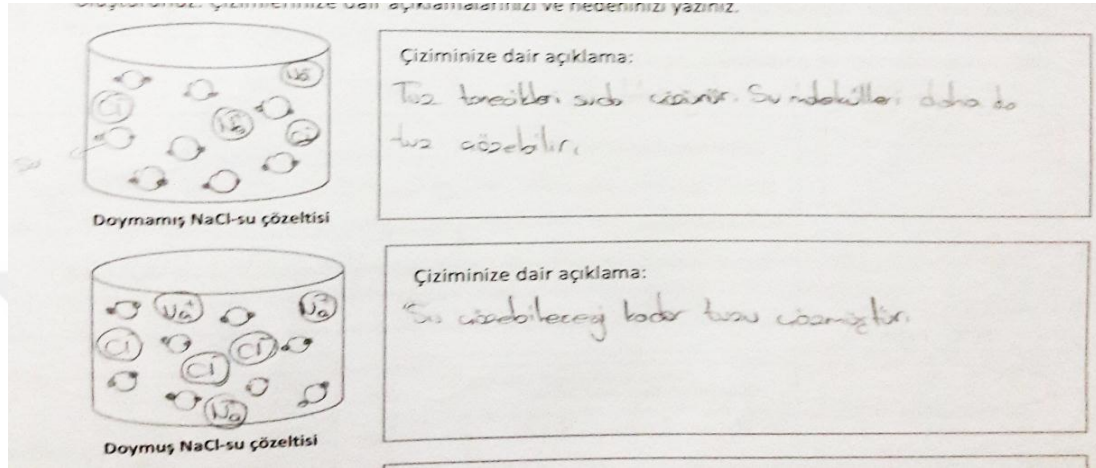 oluşturunuz. Çizimlerinize dair açıklamalarınızı ve nedeninizi yazınız.
Na⁺
Cl⁻
Na⁺
Cl⁻
Su
Doymamış NaCl-su çözeltisi
Çiziminize dair açıklama:
Tuz tanecikleri suda çözünür. Su molekülleri daha da
tuz çözebilir.
Na⁺
Na⁺
Cl⁻
Cl⁻
Cl⁻
Na⁺
Doymuş NaCl-su çözeltisi
Çiziminize dair açıklama:
Su çözebileceği kadar tuzu çözmüştür.